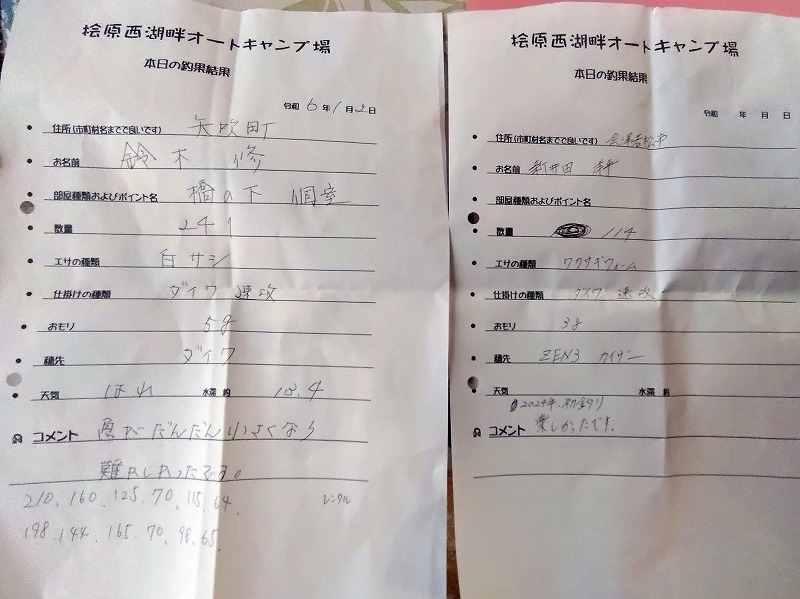 桧原西湖畔オートキャンプ場
本日の釣果結果
令和 6 年 1 月 2 日
• 住所(市町村名まででで良いです) 矢吹町
• お名前 鈴木 修
• 部屋種類およびポイント名 橋の下 個室
• 数量 241
• エサの種類 白サシ
• 仕掛けの種類 ダイワ 速攻
• おもり 5g
• 穂先 ダイワ
• 天気 はれ 水深 約 12.4
コメント 魚がだんだん小さくなり
難しかったです。
210、160、125、70、115、64、
レンタル
198、144、165、70、98、65、
桧原西湖畔オートキャンプ場
本日の釣果結果
令和 年 月 日
• 住所(市町村名まででで良いです) 会津若松市
• お名前 新井田
• 部屋種類およびポイント名
• 数量 114
• エサの種類 ワカサギウィーム
• 仕掛けの種類 ダイワ 速攻
• おもり 3g
• 穂先 ZEN3
• 天気 水深 約
2024年、初釣り
コメント 楽しかったです。